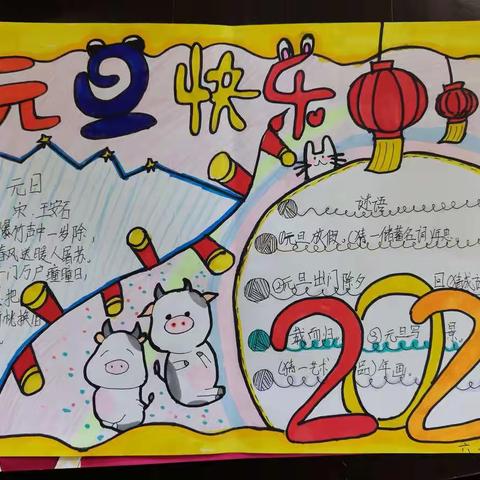 元旦快乐
元日
宋.王安石
爆竹声中一岁除,
春风送暖入屠苏.
门万户曈曈日,
把
桃换旧
谜语
①元旦放假.(猜一储蓄名词
②元旦出门除夕 回(猜成
载而归. ③元旦写 景.
(猜一艺术 品)年画.
202
六